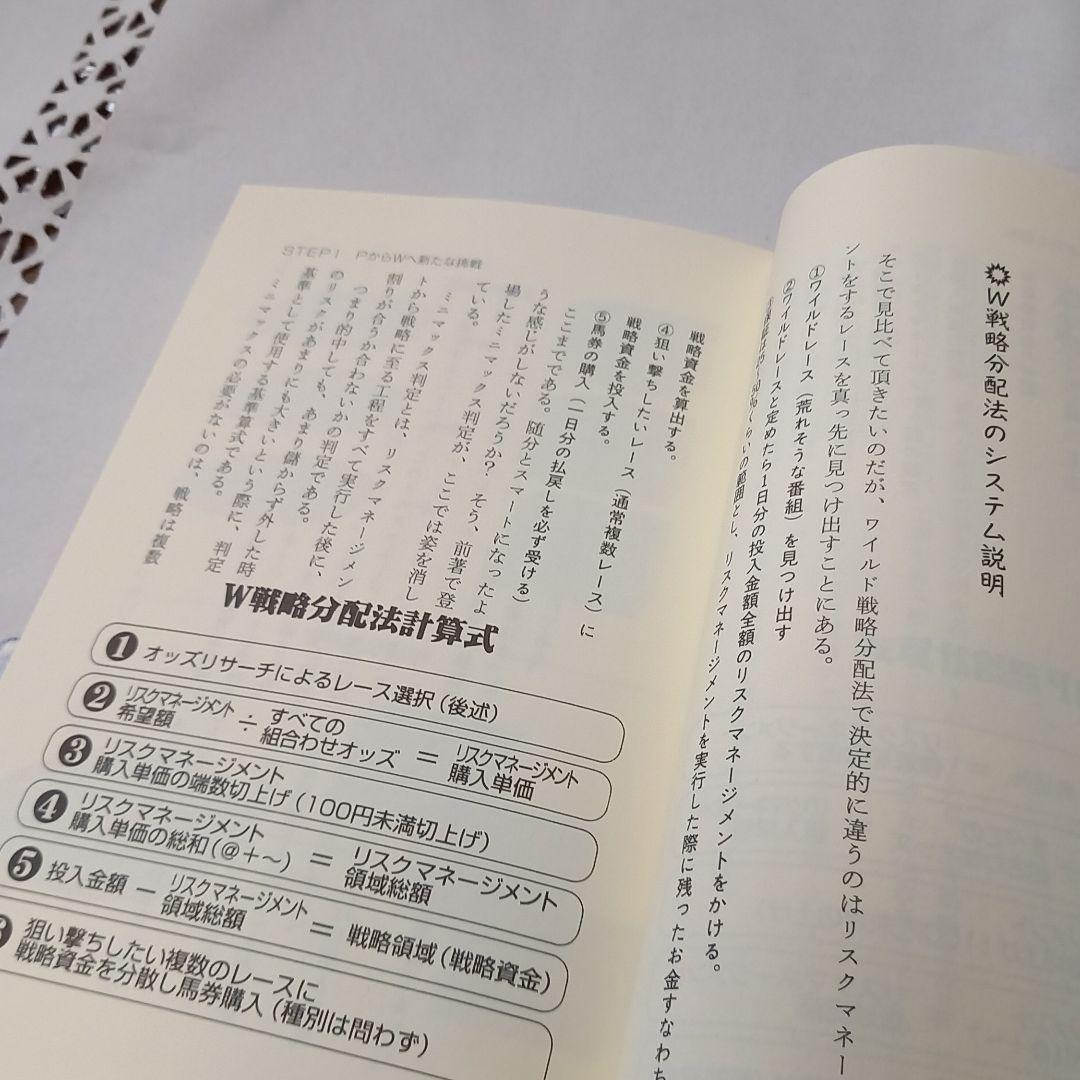 ✺W戦略分配法のシステム説明
そこで見比べて頂きたいのだが、ワイルド戦略分配法で決定的に違うのはリスクマネー
ントをするレースを真っ先に見つけ出すことにある。
①ワイルドレース（荒れそうな番組）を見つけ出す
②ワイルドレースと定めたら1日分の投入金額全額のリスクマネージメントをかける。
くらいの範囲とし、リスクマネージメントを実行した際に残ったお金すなわち
STEP1 PからWへ新たな挑戦
戦略資金を算出する。
④狙い撃ちしたいレース（通常複数レース）に
戦略資金を投入する。
⑤馬券の購入（一日分の払戻しを必ず受ける）
ここまでである。随分とスマートになったよ
うな感じがしないだろうか？ そう、前著で登
場したミニマックス判定が、ここでは姿を消し
ている。
ミニマックス判定とは、リスクマネージメン
トから戦略に至る工程をすべて実行した後に、
割りが合うか合わないかの判定である。
つまり的中しても、あまり儲からず外した時
のリスクがあまりにも大きいという際に、判定
基準として使用する基準算式である。
ミニマックスの必要がないのは、戦略は複数
W戦略分配法計算式
❶オッズリサーチによるレース選択（後述）
❷リスクマネージメント希望額 ÷ すべての組合わせオッズ ＝ リスクマネージメント購入単価
❸リスクマネージメント
購入単価の端数切上げ（100円未満切上げ）
❹リスクマネージメント購入単価の総和（@＋～） ＝ リスクマネージメント領域総額
❺投入金額 － リスクマネージメント領域総額 ＝ 戦略領域（戦略資金）
狙い撃ちしたい複数のレースに
戦略資金を分散し馬券購入（種別は問わず）